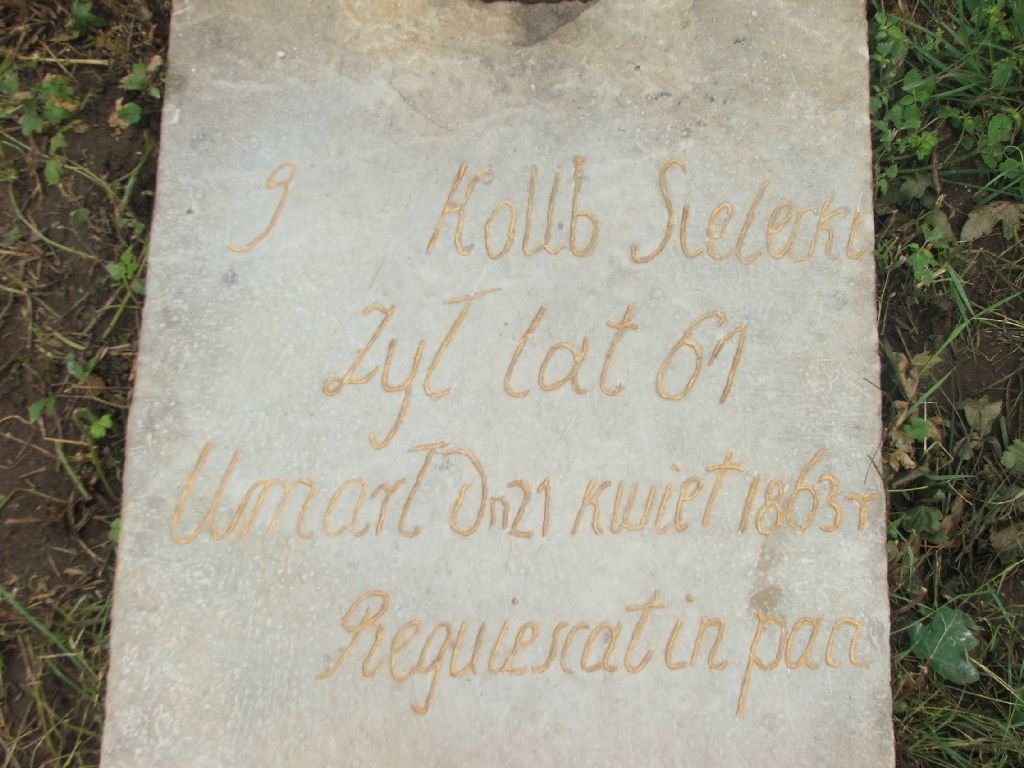 J Kollb Sielecki
Zył lat 61
Umarł Dn 21 kwiet 1863 r
Requiescat in pac